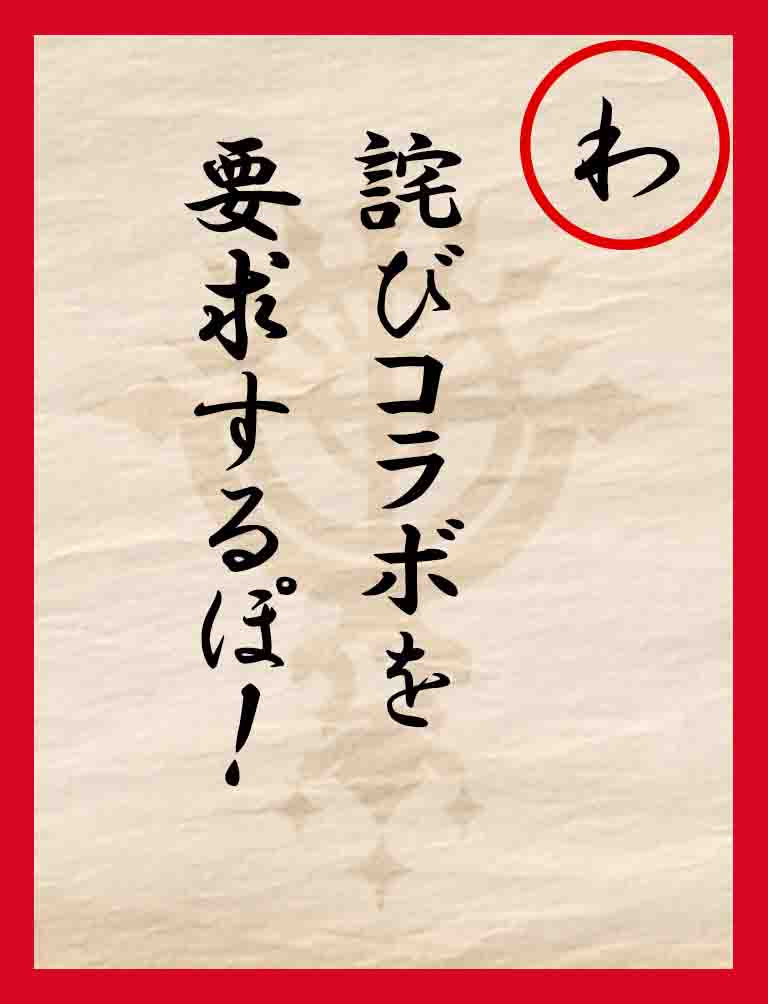 わ
詫びコラボを
要求するぽ！